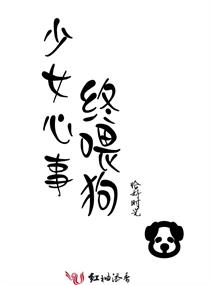 少女心事
终喂狗
恰好时光
红袖添香